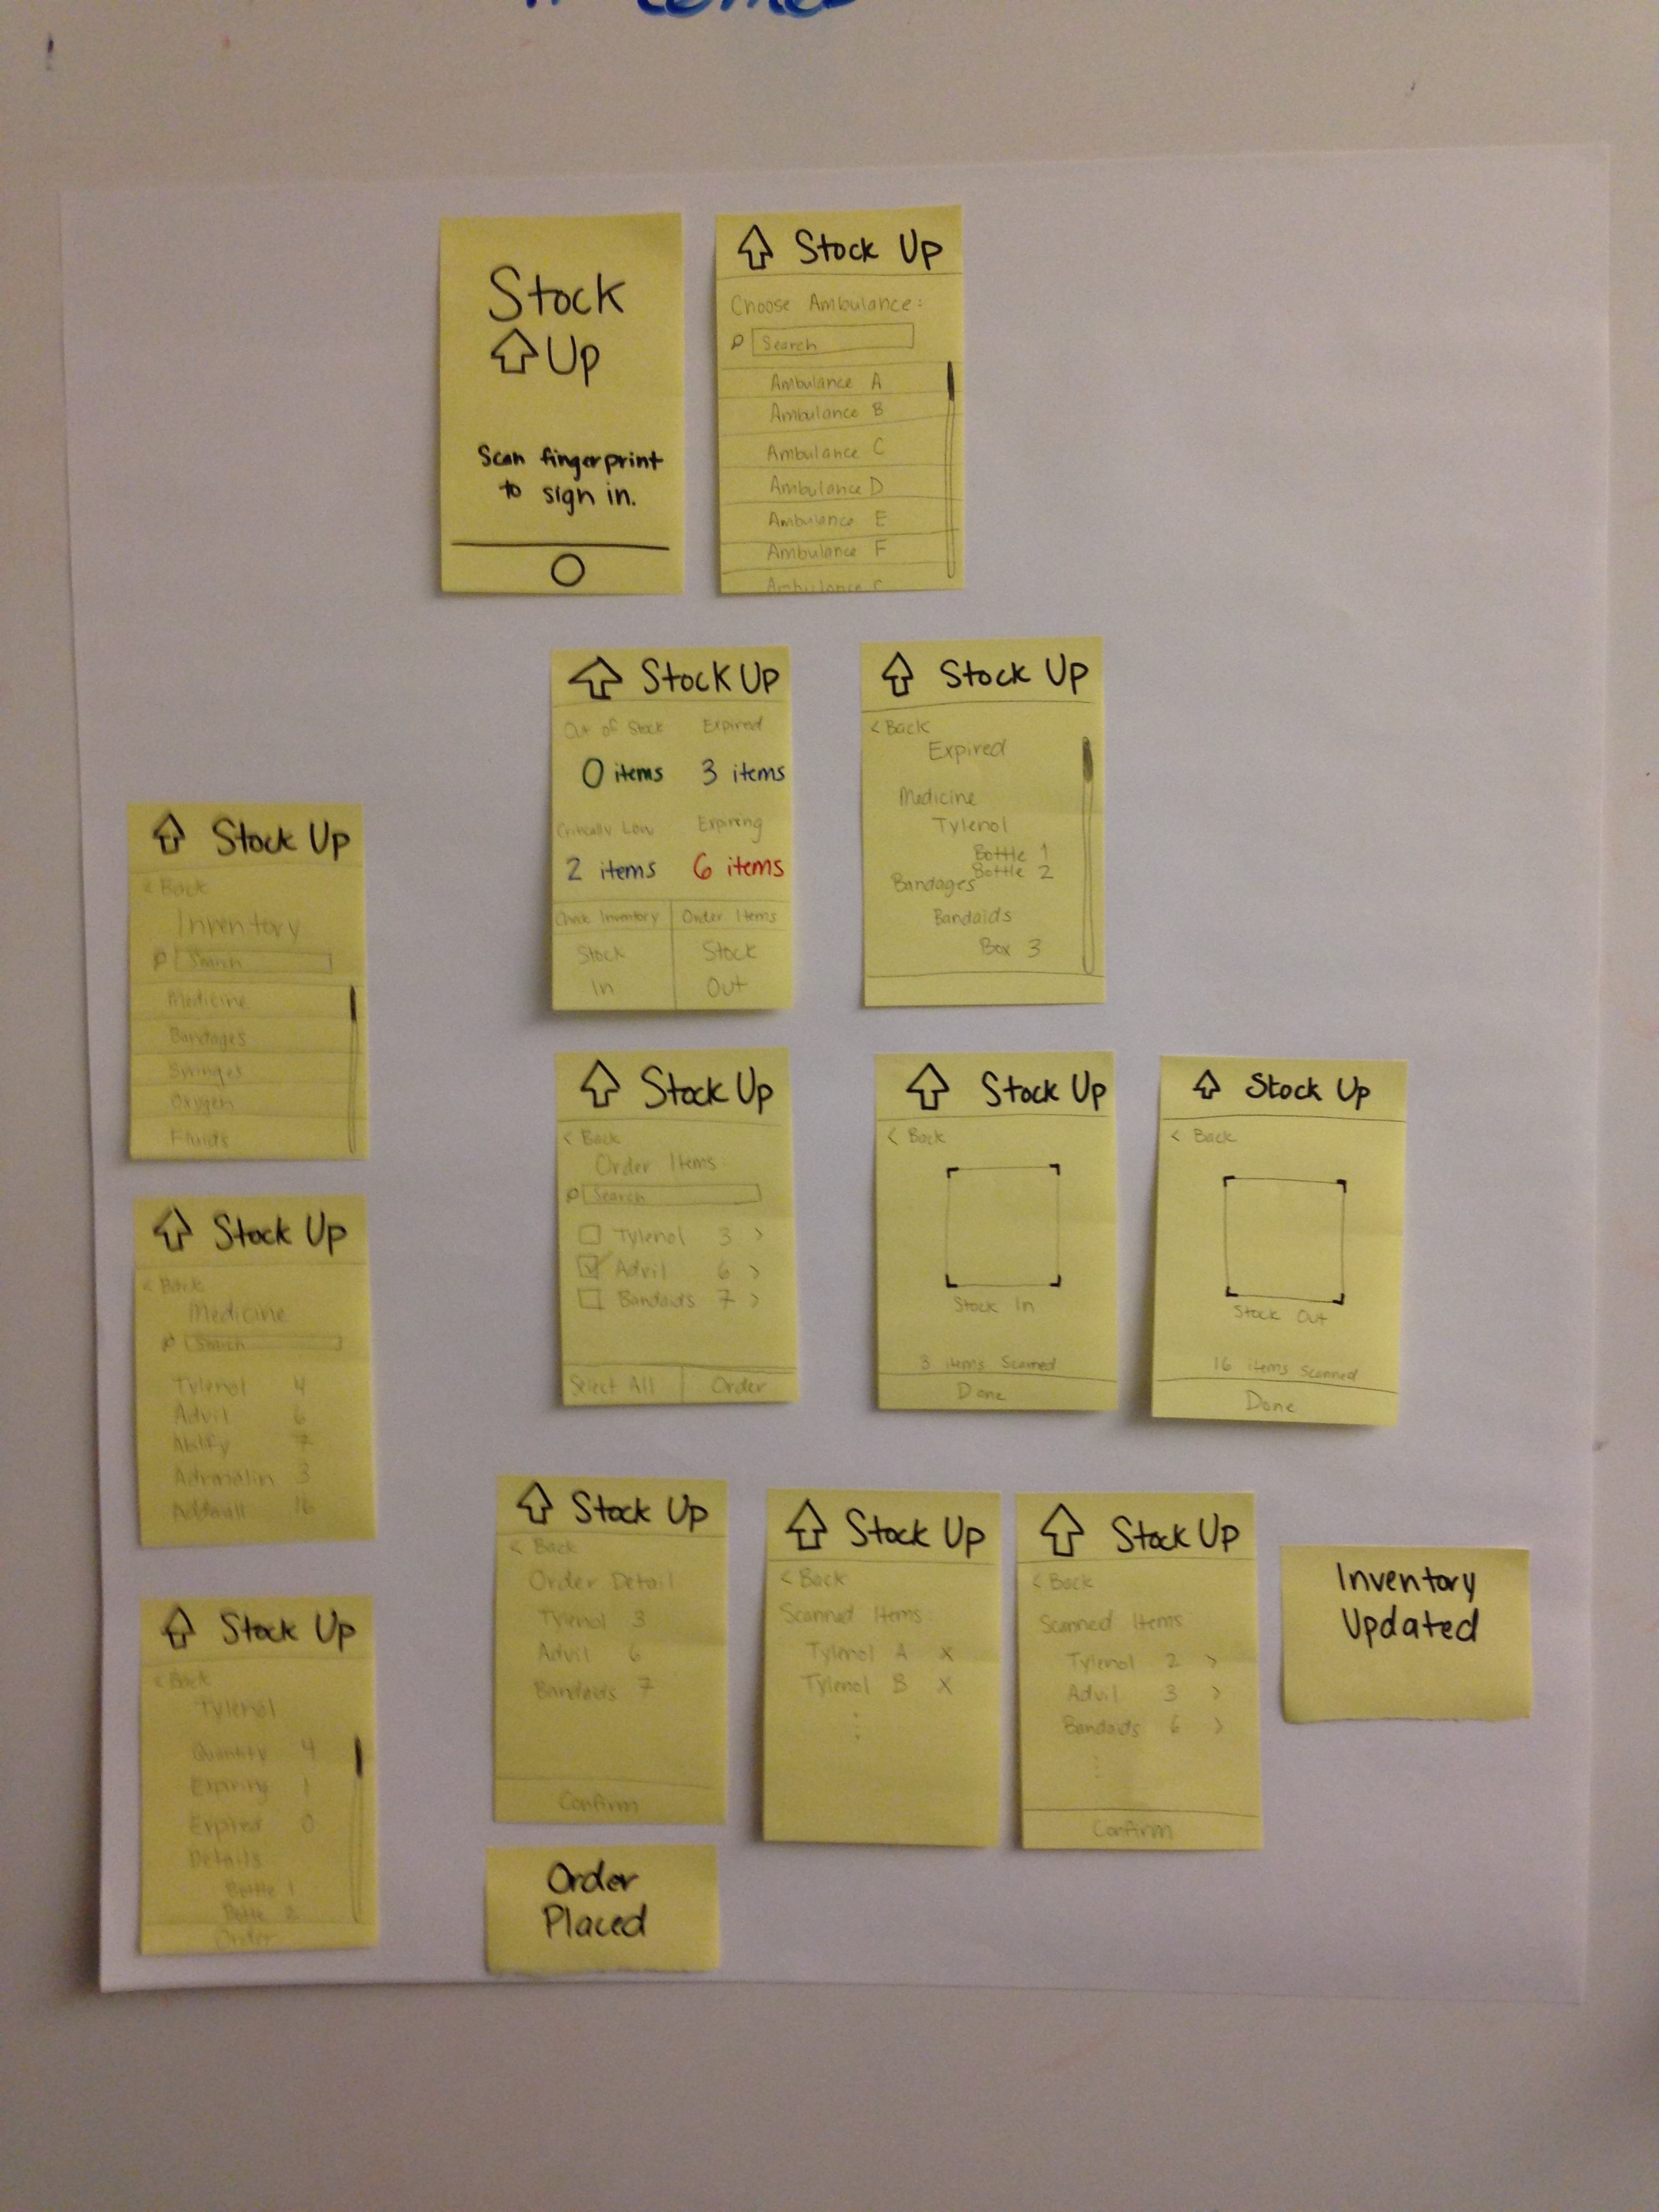 Stock
Up
Scan fingerprint
to sign in.
Stock Up
Choose Ambulance:
Search
Ambulance A
Ambulance B
Ambulance C
Ambulance D
Ambulance E
Ambulance F
Stock Up
Out of Stock Expired
0 items 3 items
Critically Low Expiring
2 items 6 items
Check Inventory Order Items
Stock Stock
In Out
Stock Up
< Back
Expired
Medicine
Tylenol
Bottle 1
Bottle 2
Bandages
Bandaids
Box 3
Stock Up
< Back
Inventory
Search
Medicine
Bandages
Syringes
Oxygen
Fluids
Stock Up
< Back
Order Items
Search
Tylenol 3 >
Advil 6 >
Bandaids 7 >
Select All Order
Stock Up
< Back
Stock In
3 items Scanned
Done
Stock Up
< Back
Stock Out
16 items Scanned
Done
Stock Up
< Back
Medicine
Search
Tylenol 4
Advil 6
Abilify 7
Adrenalin 3
16
Stock Up
< Back
Order Detail
Tylenol 3
Advil 6
Bandaids 7
Confirm
Order
Placed
Stock Up
< Back
Scanned Items
Tylenol A x
Tylenol B x
Stock Up
< Back
Scanned Items
Tylenol 2 >
Advil 3 >
Bandaids 6 >
Confirm
Inventory
Updated
Stock Up
< Back
Tylenol
Quantity 4
Expiring 1
Expired 0
Details
Bottle 1
Bottle 2
Order